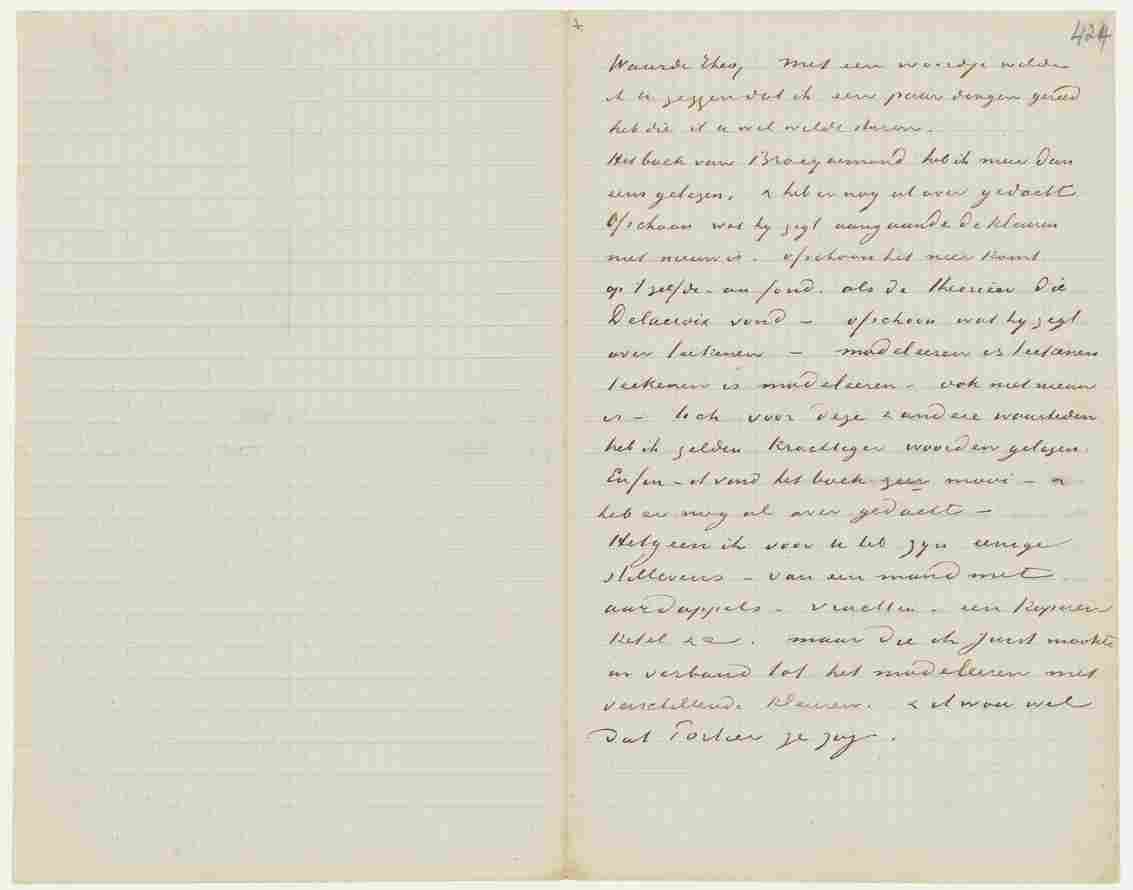 424
Waarde Theo, Met een woordje wilde
ik U zeggen dat ik een paar dingen gereed
heb die ik U wel wilde sturen.
Het boek van Bracquemond heb ik meer dan
eens gelezen, & heb er nog al over gedacht
Ofschoon wat hy zegt aangaande de kleuren
niet nieuw is. ofschoon het neer komt
op 't zelfde – au fond. als de theorieen die
Delacroix vond – ofschoon wat hy zegt
over teekenen – modeleeren is teekenen
teekenen is modeleeren – ook niet nieuw
is – toch voor deze & andere waarheden
heb ik zelden krachtiger woorden gelezen.
Enfin – ik vond het boek zeer mooi – &
heb er nog al over gedacht –
Hetgeen ik voor U heb zyn eenige
stillevens – van een mand met
aardappels – vruchten – een koperen
ketel &c. maar die ik juist maakte
in verband tot het modeleeren met
verschillende kleuren. & ik wou wel
dat Portier ze zag.